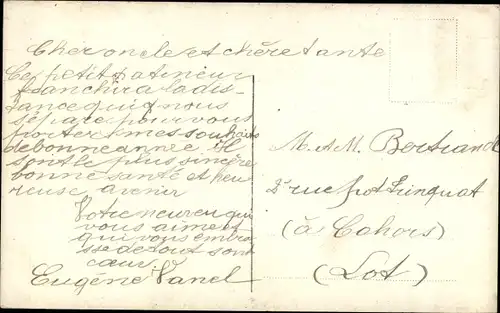 Cher oncle et chère tante
Ce petit patineur
franchira la dis-
tance qui nous
sépare pour vous
porter mes souhaits
de bonne année. Il
sont le plus sincère
bonne santé et heu
reuse avenir
Votre neuveu qui
vous aime et
qui vous embra
sse de tout sont
cœur.
Eugène Vanel
M. et M. Bertrand
2 rue
(à Cahors)
(Lot)